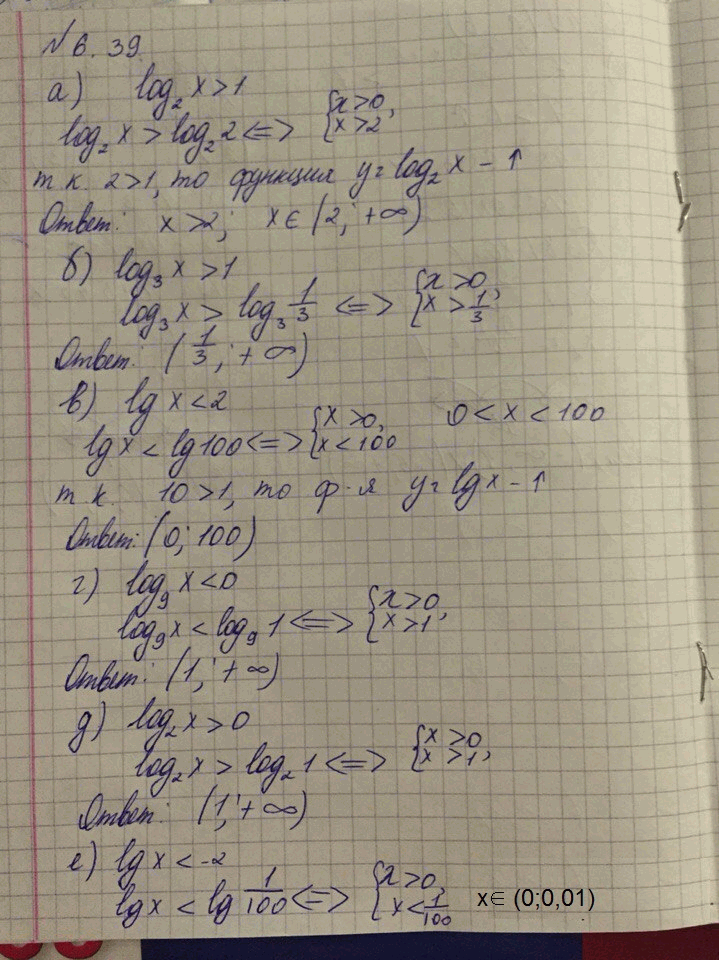 № 6.39.
а) log₂ x > 1
log₂ x > log₂ 2 <=> { x > 0, x > 2
т к. 2 > 1, то функция y = log₂ x - ↑
Ответ: x > 2; x ∈ (2; +∞)
б) log₃ x > 1
log₃ x > log₃ 1/3 <=> { x > 0, x > 1/3
Ответ: (1/3; +∞)
в) lg x < 2
lg x < lg 100 <=> { x > 0, x < 100 0 < x < 100
т к 10 > 1, то ф-я y = lg x - ↑
Ответ: (0; 100)
г) log₉ x < 0
log₉ x < log₉ 1 <=> { x > 0, x > 1
Ответ: (1; +∞)
д) log₂ x > 0
log₂ x > log₂ 1 <=> { x > 0, x > 1
Ответ: (1; +∞)
е) lg x < -2
lg x < lg 1/100 <=> { x > 0, x < 1/100 x∈ (0;0,01)